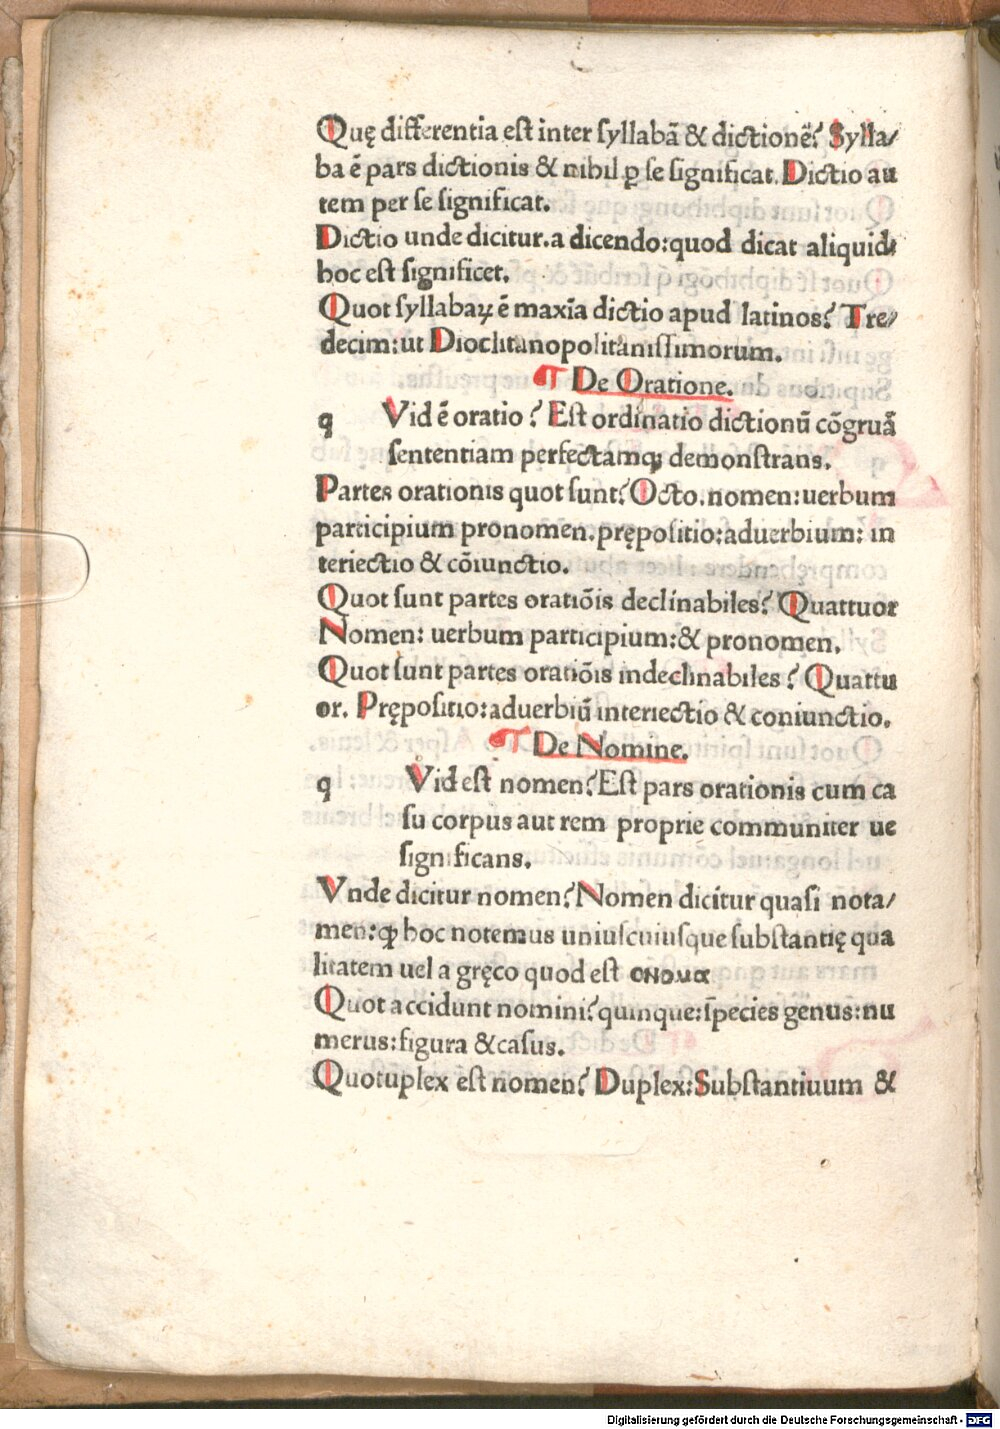 Quę differentia est inter syllabā & dictionē? Sylla/
ba ē pars dictionis & nihil ꝑ se significat. Dictio au
tem per se significat.
Dictio unde dicitur. a dicendo: quod dicat aliquid/
hoc est significet.
Quot syllabaꝝ ē maxīa dictio apud latinos? Tre/
decim: ut Dioclitanopolitanissimorum.
¶ De Oratione.
q Vid ē oratio? Est ordinatio dictionū cōgruā
sententiam perfectamqꝫ demonstrans.
Partes orationis quot sunt? Octo. nomen: uerbum
participium pronomen. prępositio: aduerbium: in
teriectio & cōiunctio.
Quot sunt partes oratiōis declinabiles? Quattuor
Nomen: uerbum participium: & pronomen.
Quot sunt partes oratiōis indeclinabiles? Quattu
or. Prępositio: aduerbiū interiectio & coniunctio.
¶ De Nomine.
q Vid est nomen? Est pars orationis cum ca
su corpus aut rem proprie communiter ue
significans.
Vnde dicitur nomen? Nomen dicitur quasi nota/
men: ꝙ hoc notemus uniuscuiusque substantię qua
litatem uel a gręco quod est ονομα
Quot accidunt nomini? quinque: species genus: nu
merus: figura & casus.
Quotuplex est nomen? Duplex: Substantiuum &
Digitalisierung gefördert durch die Deutsche Forschungsgemeinschaft - DFG